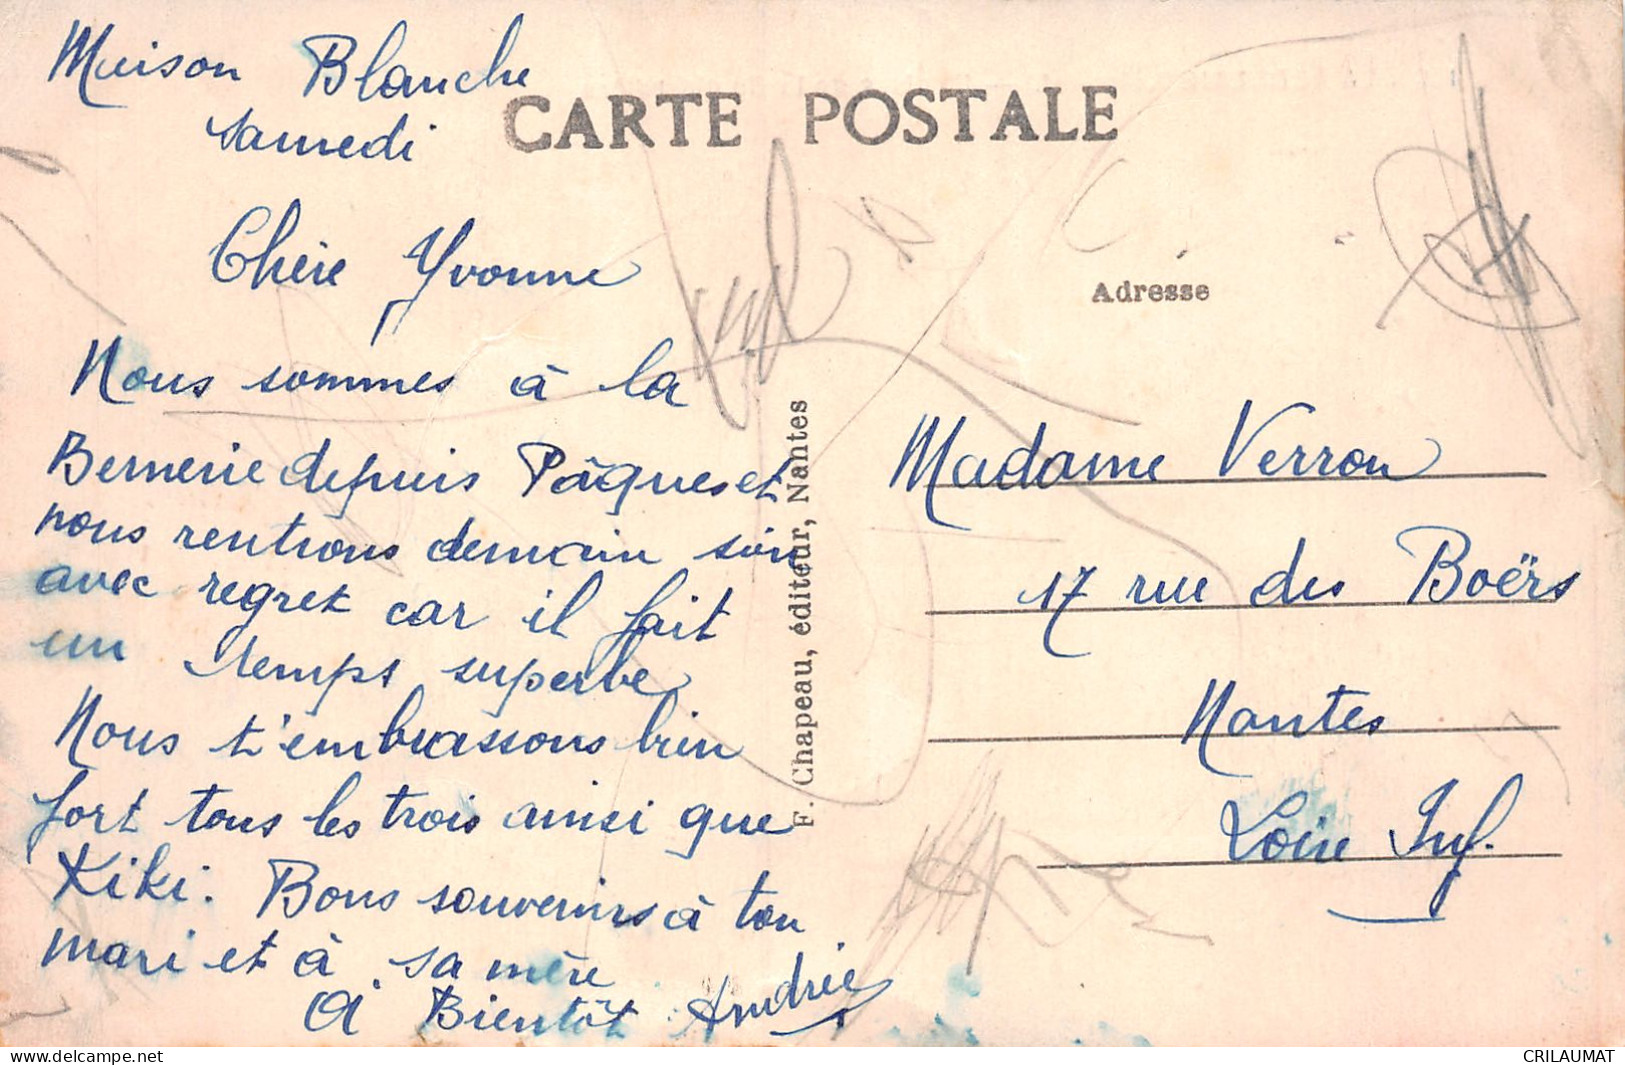 Maison Blanche
Samedi
CARTE POSTALE
Chère Yvonne
Nous sommes à la
Bernerie depuis Pâques et
nous rentrons demain soir
avec regret car il fait
un temps superbe
Nous t'embrassons bien
fort tous les trois ainsi que
Kiki. Bons souvenirs à ton
mari et à sa mère
A Bientôt Andrée
F. Chapeau, éditeur, Nantes
Adresse
Madame Verron
17 rue des Boërs
Nantes
Loire Inf.
delcampe.net
CRILAUMAT